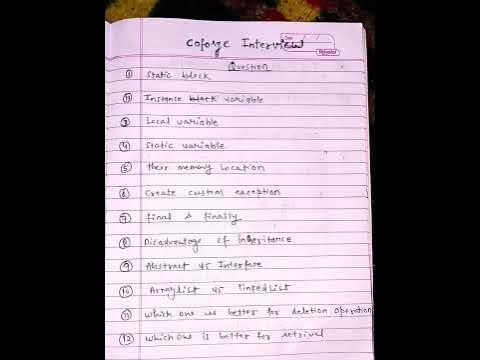 Coforge Interview
Question
① Static block
⑪ Instance block variable
③ Local variable
④ Static variable
⑤ their memory Location
⑥ Create custom exception
⑦ final & finally
⑧ Disadvantage of Inheritance
⑨ Abstract vs Interface
⑩ Arraylist vs linkedlist
⑪ Which one is better for deletion operation
⑫ which one is better for retrival